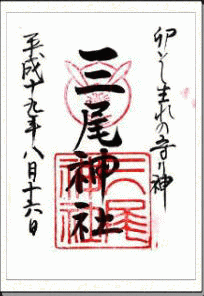 卯どし生れの守り神
三尾神社
平成十九年八月十六日
三尾神社